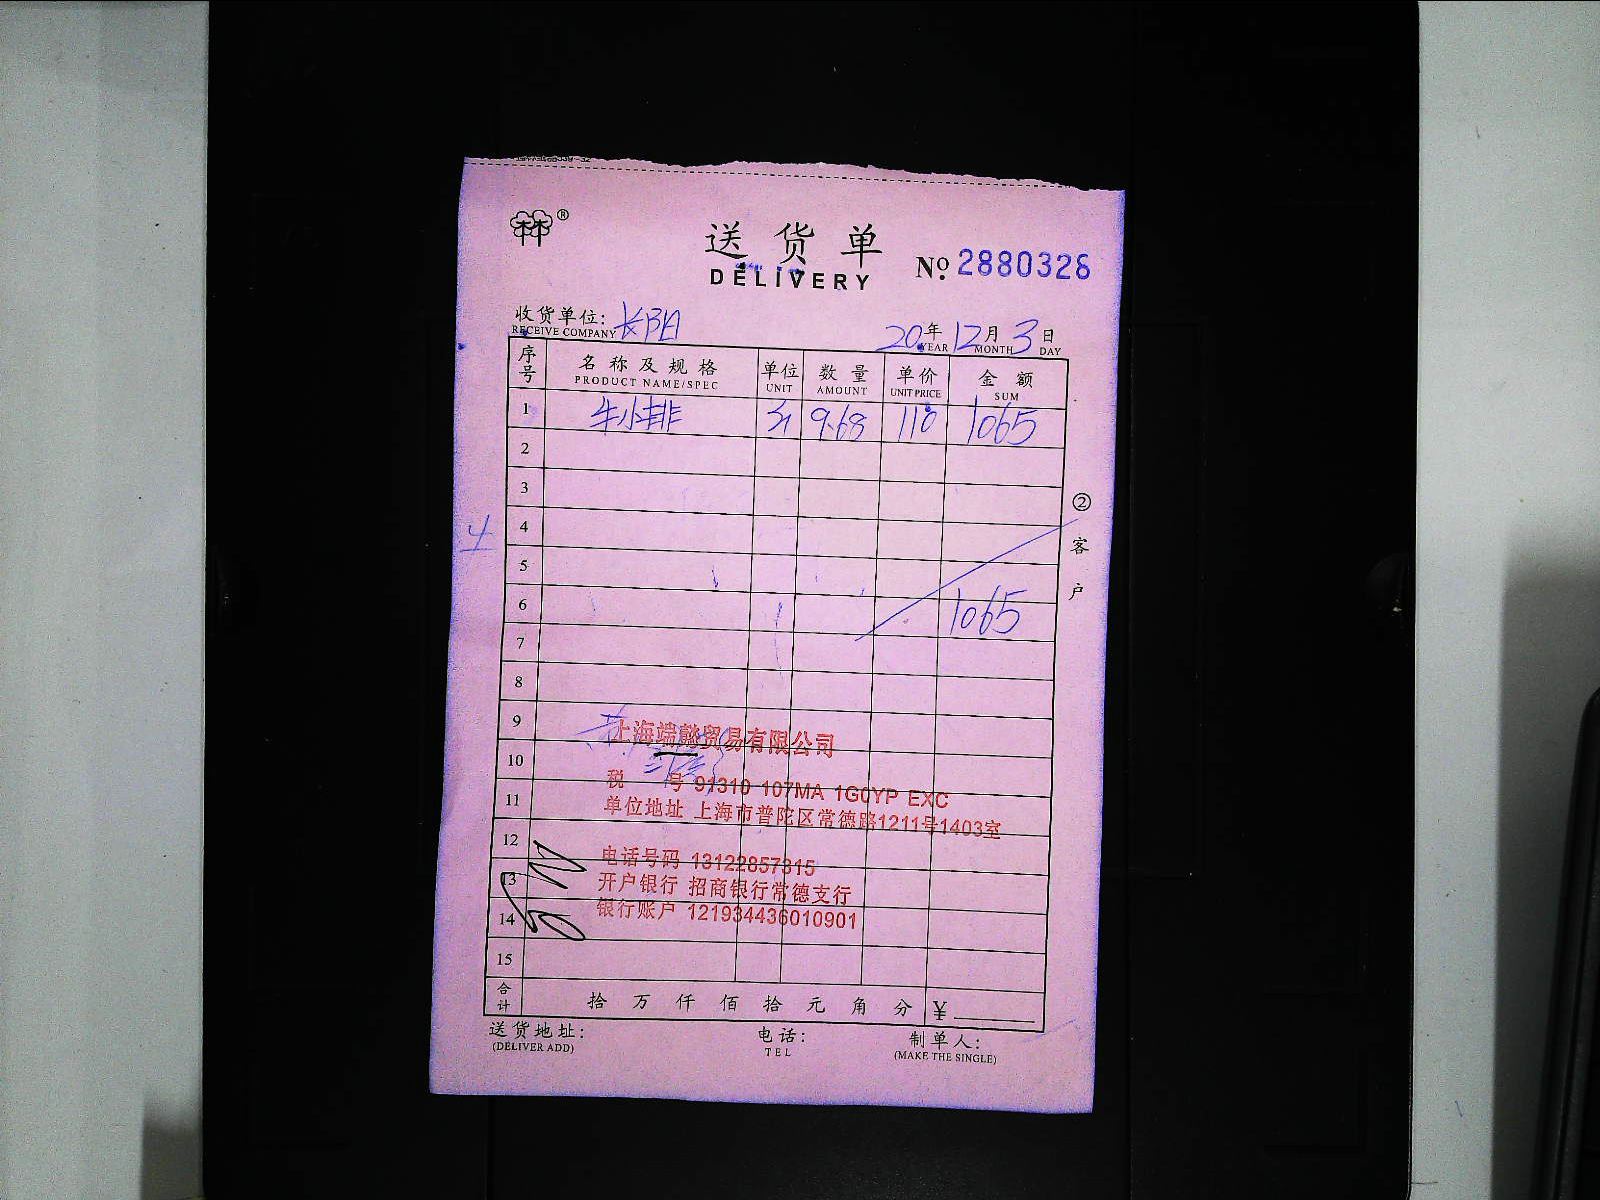 送货单
DELIVERY
No. 2880326
收货单位: 长阳
RECEIVE COMPANY
20年 12月 3日
YEAR MONTH DAY
序号 名称及规格 单位 数量 单价 金额
PRODUCT NAME/SPEC UNIT AMOUNT UNIT PRICE SUM
1 牛小排 9.68 110 1065
2
3
4
5
6 1065
7
8
9
10
11
12
13
14
15
② 客户
4
上海端懿贸易有限公司
税 号 91310 107MA 1G0YP EXC
单位地址 上海市普陀区常德路1211号1403室
电话号码 13122857315
开户银行 招商银行常德支行
银行账户 121934436010901
合计 拾 万 仟 佰 拾 元 角 分 ¥
送货地址: 电话: 制单人:
(DELIVER ADD) TEL (MAKE THE SINGLE)